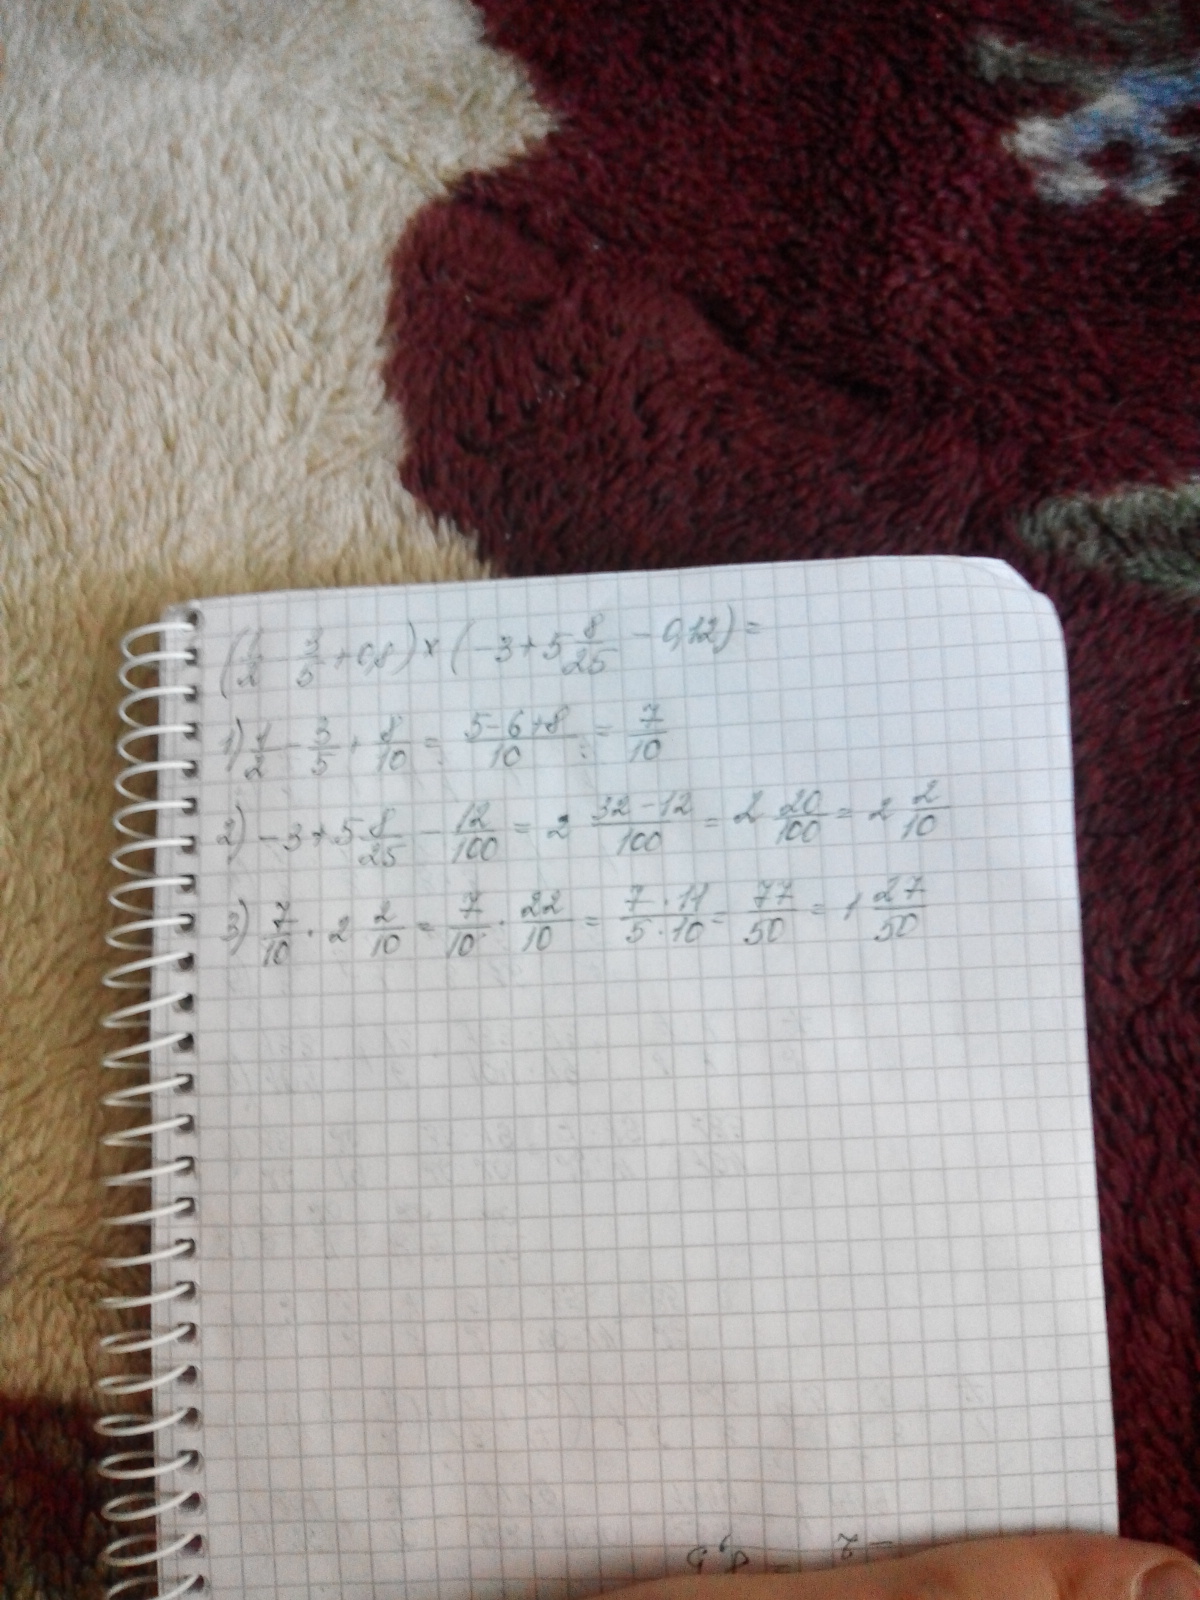 (1/2 - 3/5 + 0,8) × (-3 + 5 8/25 - 0,12) =
1) 1/2 - 3/5 + 8/10 = (5-6+8)/10 = 7/10
2) -3 + 5 8/25 - 12/100 = 2 (32-12)/100 = 2 20/100 = 2 2/10
3) 7/10 · 2 2/10 = 7/10 · 22/10 = (7·11)/(5·10) = 77/50 = 1 27/50